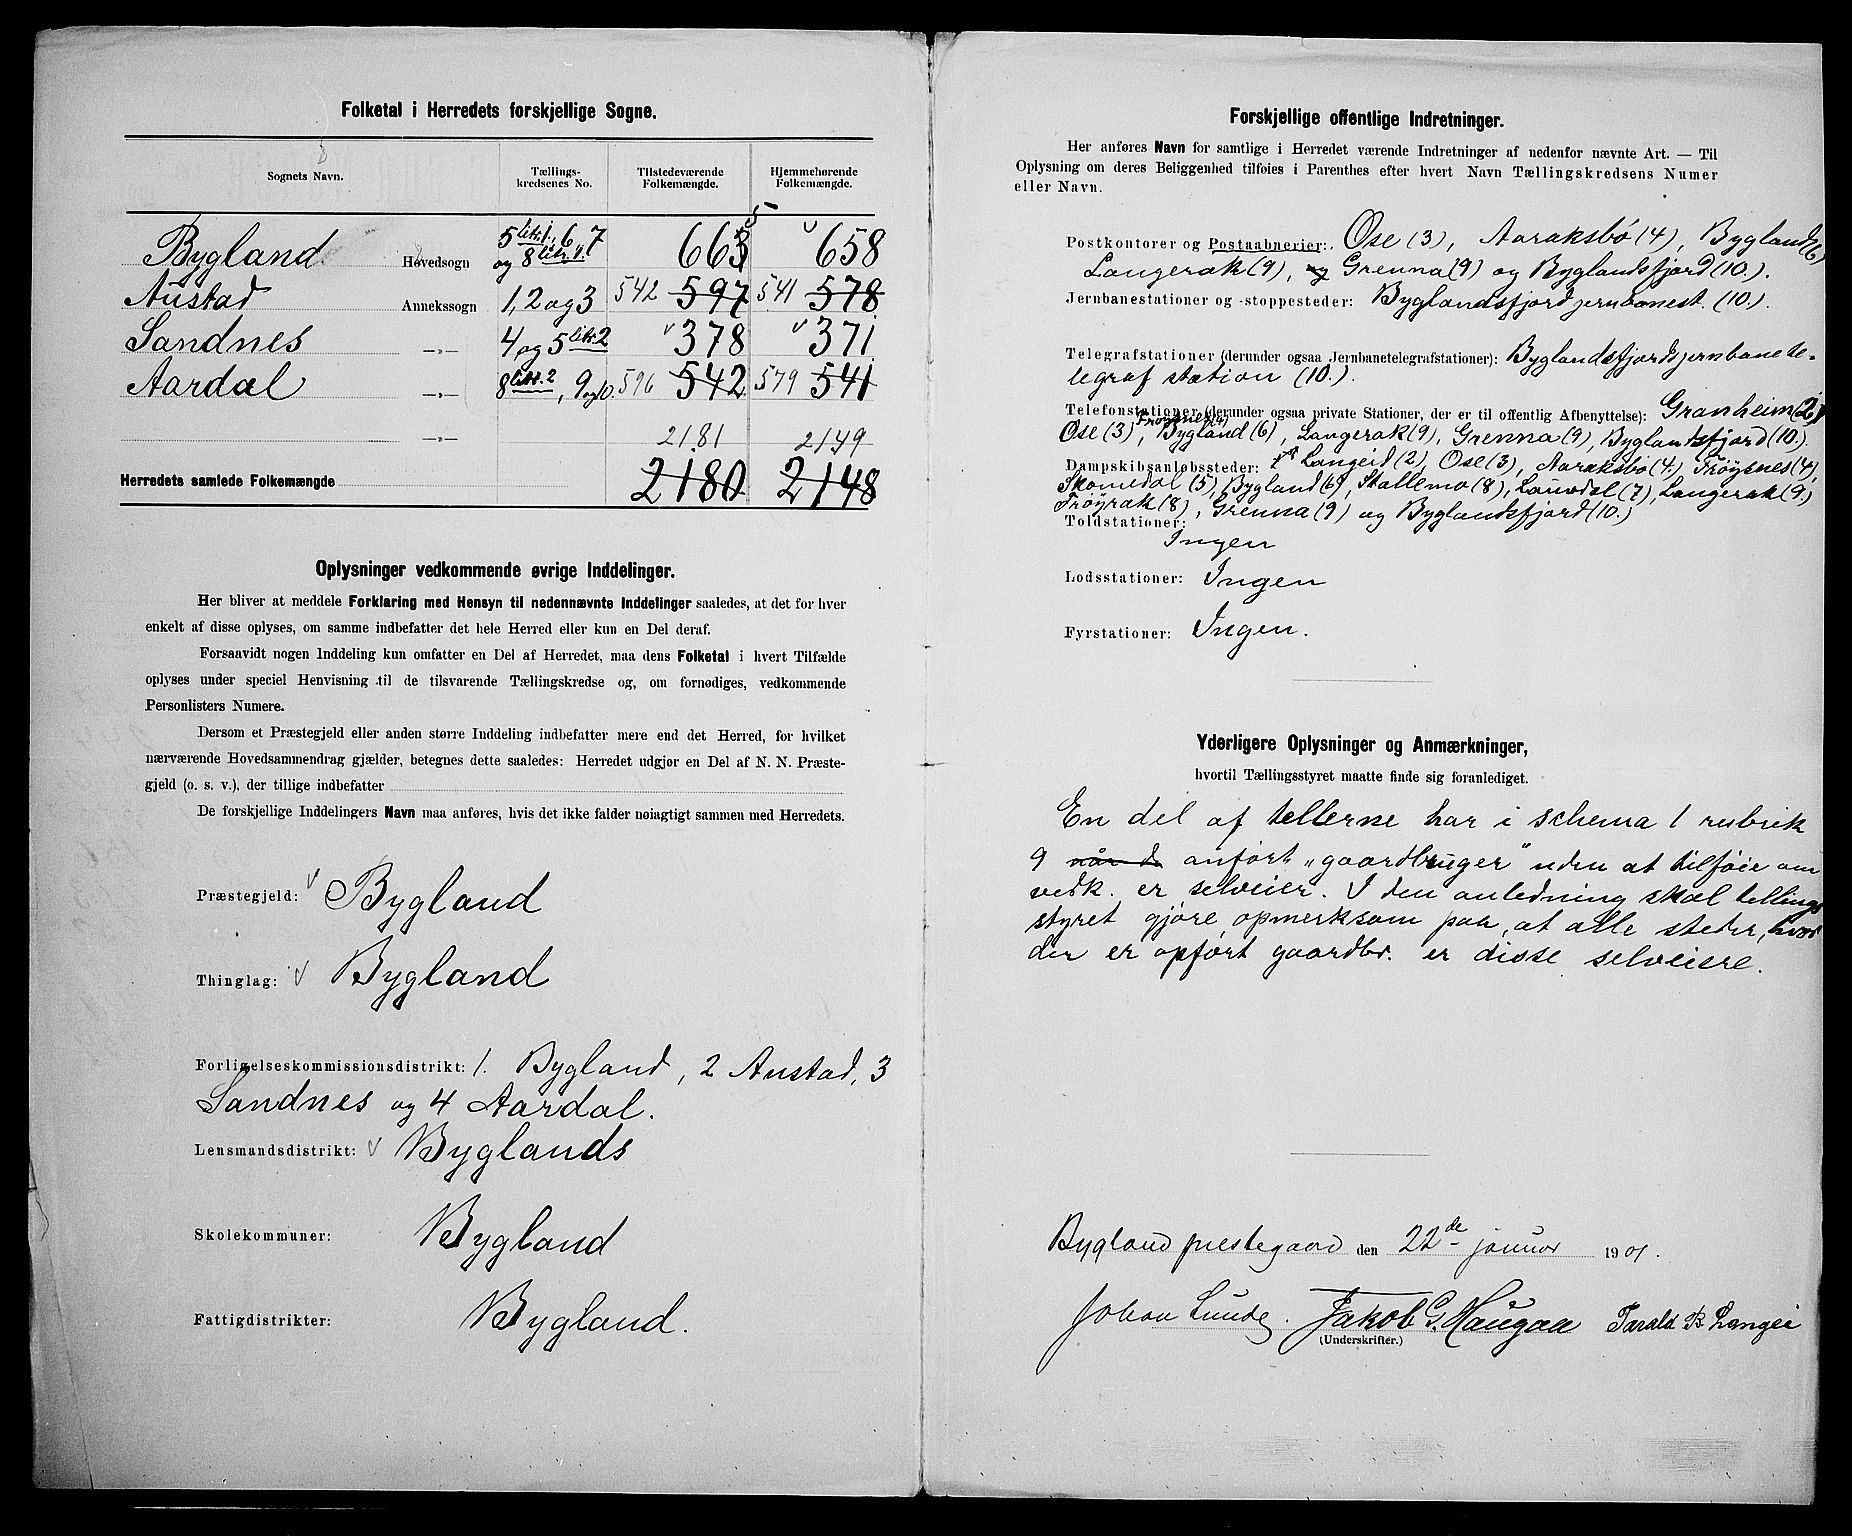 Folketal i Herredets forskjellige Sogne.
Sognets Navn. Tællings- kredsenes No. Tilstedeværende Folkemængde. Hjemmehørende Folkemængde.
Bygland Hovedsogn 5 litr. 1, 6, 7 og 8 litr. 1. 663 5 658
Austad Annekssogn 1, 2 og 3 542 597 541 578
Sandnes —„— 4 og 5 litr. 2 378 371
Aardal —„— 8 litr. 2, 9 og 10. 596 542 579 541
—„— 2181 2149
Herredets samlede Folkemængde 2180 2148
Oplysninger vedkommende øvrige Inddelinger.
Her bliver at meddele Forklaring med Hensyn til nedennævnte Inddelinger saaledes, at det for hver
enkelt af disse oplyses, om samme indbefatter det hele Herred eller kun en Del deraf.
Forsaavidt nogen Inddeling kun omfatter en Del af Herredet, maa dens Folketal i hvert Tilfælde
oplyses under speciel Henvisning til de tilsvarende Tællingskredse og, om fornødiges, vedkommende
Personlisters Numere.
Dersom et Præstegjeld eller anden større Inddeling indbefatter mere end det Herred, for hvilket
nærværende Hovedsammendrag gjælder, betegnes dette saaledes: Herredet udgjør en Del af N. N. Præste-
gjeld (o. s. v.), der tillige indbefatter
De forskjellige Inddelingers Navn maa anføres, hvis det ikke falder nøiagtigt sammen med Herredets.
Præstegjeld: Bygland
Thinglag: Bygland
Forligelseskommissionsdistrikt: 1. Bygland, 2 Austad, 3
Sandnes og 4 Aardal.
Lensmandsdistrikt: Byglands
Skolekommuner: Bygland
Fattigdistrikter: Bygland.
Forskjellige offentlige Indretninger.
Her anføres Navn for samtlige i Herredet værende Indretninger af nedenfor nævnte Art. — Til
Oplysning om deres Beliggenhed tilføies i Parenthes efter hvert Navn Tællingskredsens Numer
eller Navn.
Postkontorer og Postaabnerier: Ose (3), Aaraksbö (4), Bygland (6)
Langerak (9), og Grenna (9) og Byglandsfjord (10.).
Jernbanestationer og -stoppesteder: Byglandsfjord jernbanest. (10.)
Telegrafstationer (derunder ogsaa Jernbanetelegrafstationer): Byglandsfjords jernbanete-
legraf station (10.).
Telefonstationer (derunder ogsaa private Stationer, der er til offentlig Afbenyttelse): Granheim (2)
Ose (3), Frøysnes (4) Bygland (6), Langerak (9), Grenna (9), Byglandsfjord (10.)
Dampskibsanløbssteder: Langeid (2), Ose (3), Aaraksbö (4.) Frøysnes (4),
Skomedal (5), Bygland (6), Skallemo (8), Lauvdal (7), Langerak (9)
Frøyrak (8), Grenna (9) og Byglandsfjord (10.)
Toldstationer:
Ingen
Lodsstationer: Ingen
Fyrstationer: Ingen.
Yderligere Oplysninger og Anmærkninger,
hvortil Tællingsstyret maatte finde sig foranlediget.
En del af tellerne har i schema 1 rubrik
9 når de anført „gaardbruger" uden at tilföie om
vedk. er selveier. I den anledning skal tellings
styret gjöre opmerksom paa, at alle steder, hvor
der er opført gaardbr. er disse selveiere.
Bygland prestegaard den 22de januar 1901.
Johan Lunde. Jakob G. Haugaa Tarald B. Langei
(Underskrifter.)